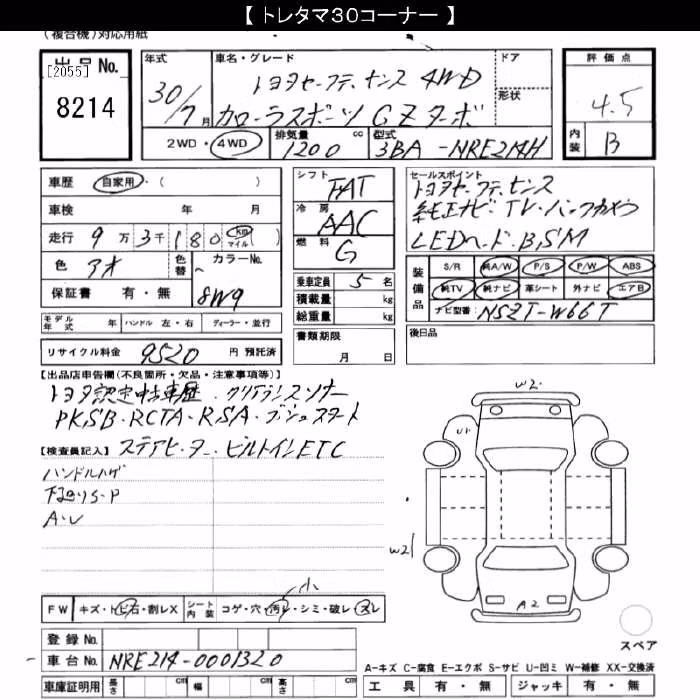 【 トレタマ30コーナー 】
(複合機)対応用紙
出品No.
[2055]
8214
年式
30/7月
車名・グレード
トヨタセーフティセンス 4WD
カローラスポーツ GZターボ
ドア
形状
評価点
4.5
内装
B
2WD・4WD
排気量 cc
1200
型式
3BA-NRE214H
車歴 自家用・( )
車検 年 月
走行 9万3千180 km マイル ( )
色 アオ 色替 カラーNo.
8W9
保証書 有・無
シフト
FAT
冷房
AAC
燃料
G
乗車定員 5 名
積載量 kg
総重量 kg
セールスポイント
トヨタセーフティセンス
純正ナビ・TV・バックカメラ
LEDヘッド・BSM
装備品
S/R 純A/W P/S P/W ABS
純TV 純ナビ 革シート 外ナビ エアB
ナビ型番: NSZT-W66T
モデル年式 年 ハンドル 左・右 ディーラー・並行
書類期限
月 日
後日品
リサイクル料金 9520 円 預託済
【出品店申告欄(不良箇所・欠品・注意事項等)】
トヨタ認定中古車歴 クリアランスソナー
PKSB・RCTA・RSA・プッシュスタート
【検査員記入】 ステアヒーター・ビルトインETC
ハンドルハゲ
下廻りS・P
A・U
W2
U1
W2
A2
小
FW キズ・トビ石・割レX シート内装 コゲ・穴・汚レ・シミ・破レ・スレ
登録No.
車台No. NRE214-0001320
車庫証明用 長さ cm 幅 cm 高さ cm
スペア
A-キズ C-腐食 E-エクボ S-サビ U-凹ミ W-補修 XX-交換済
工具 有・無 ジャッキ 有・無